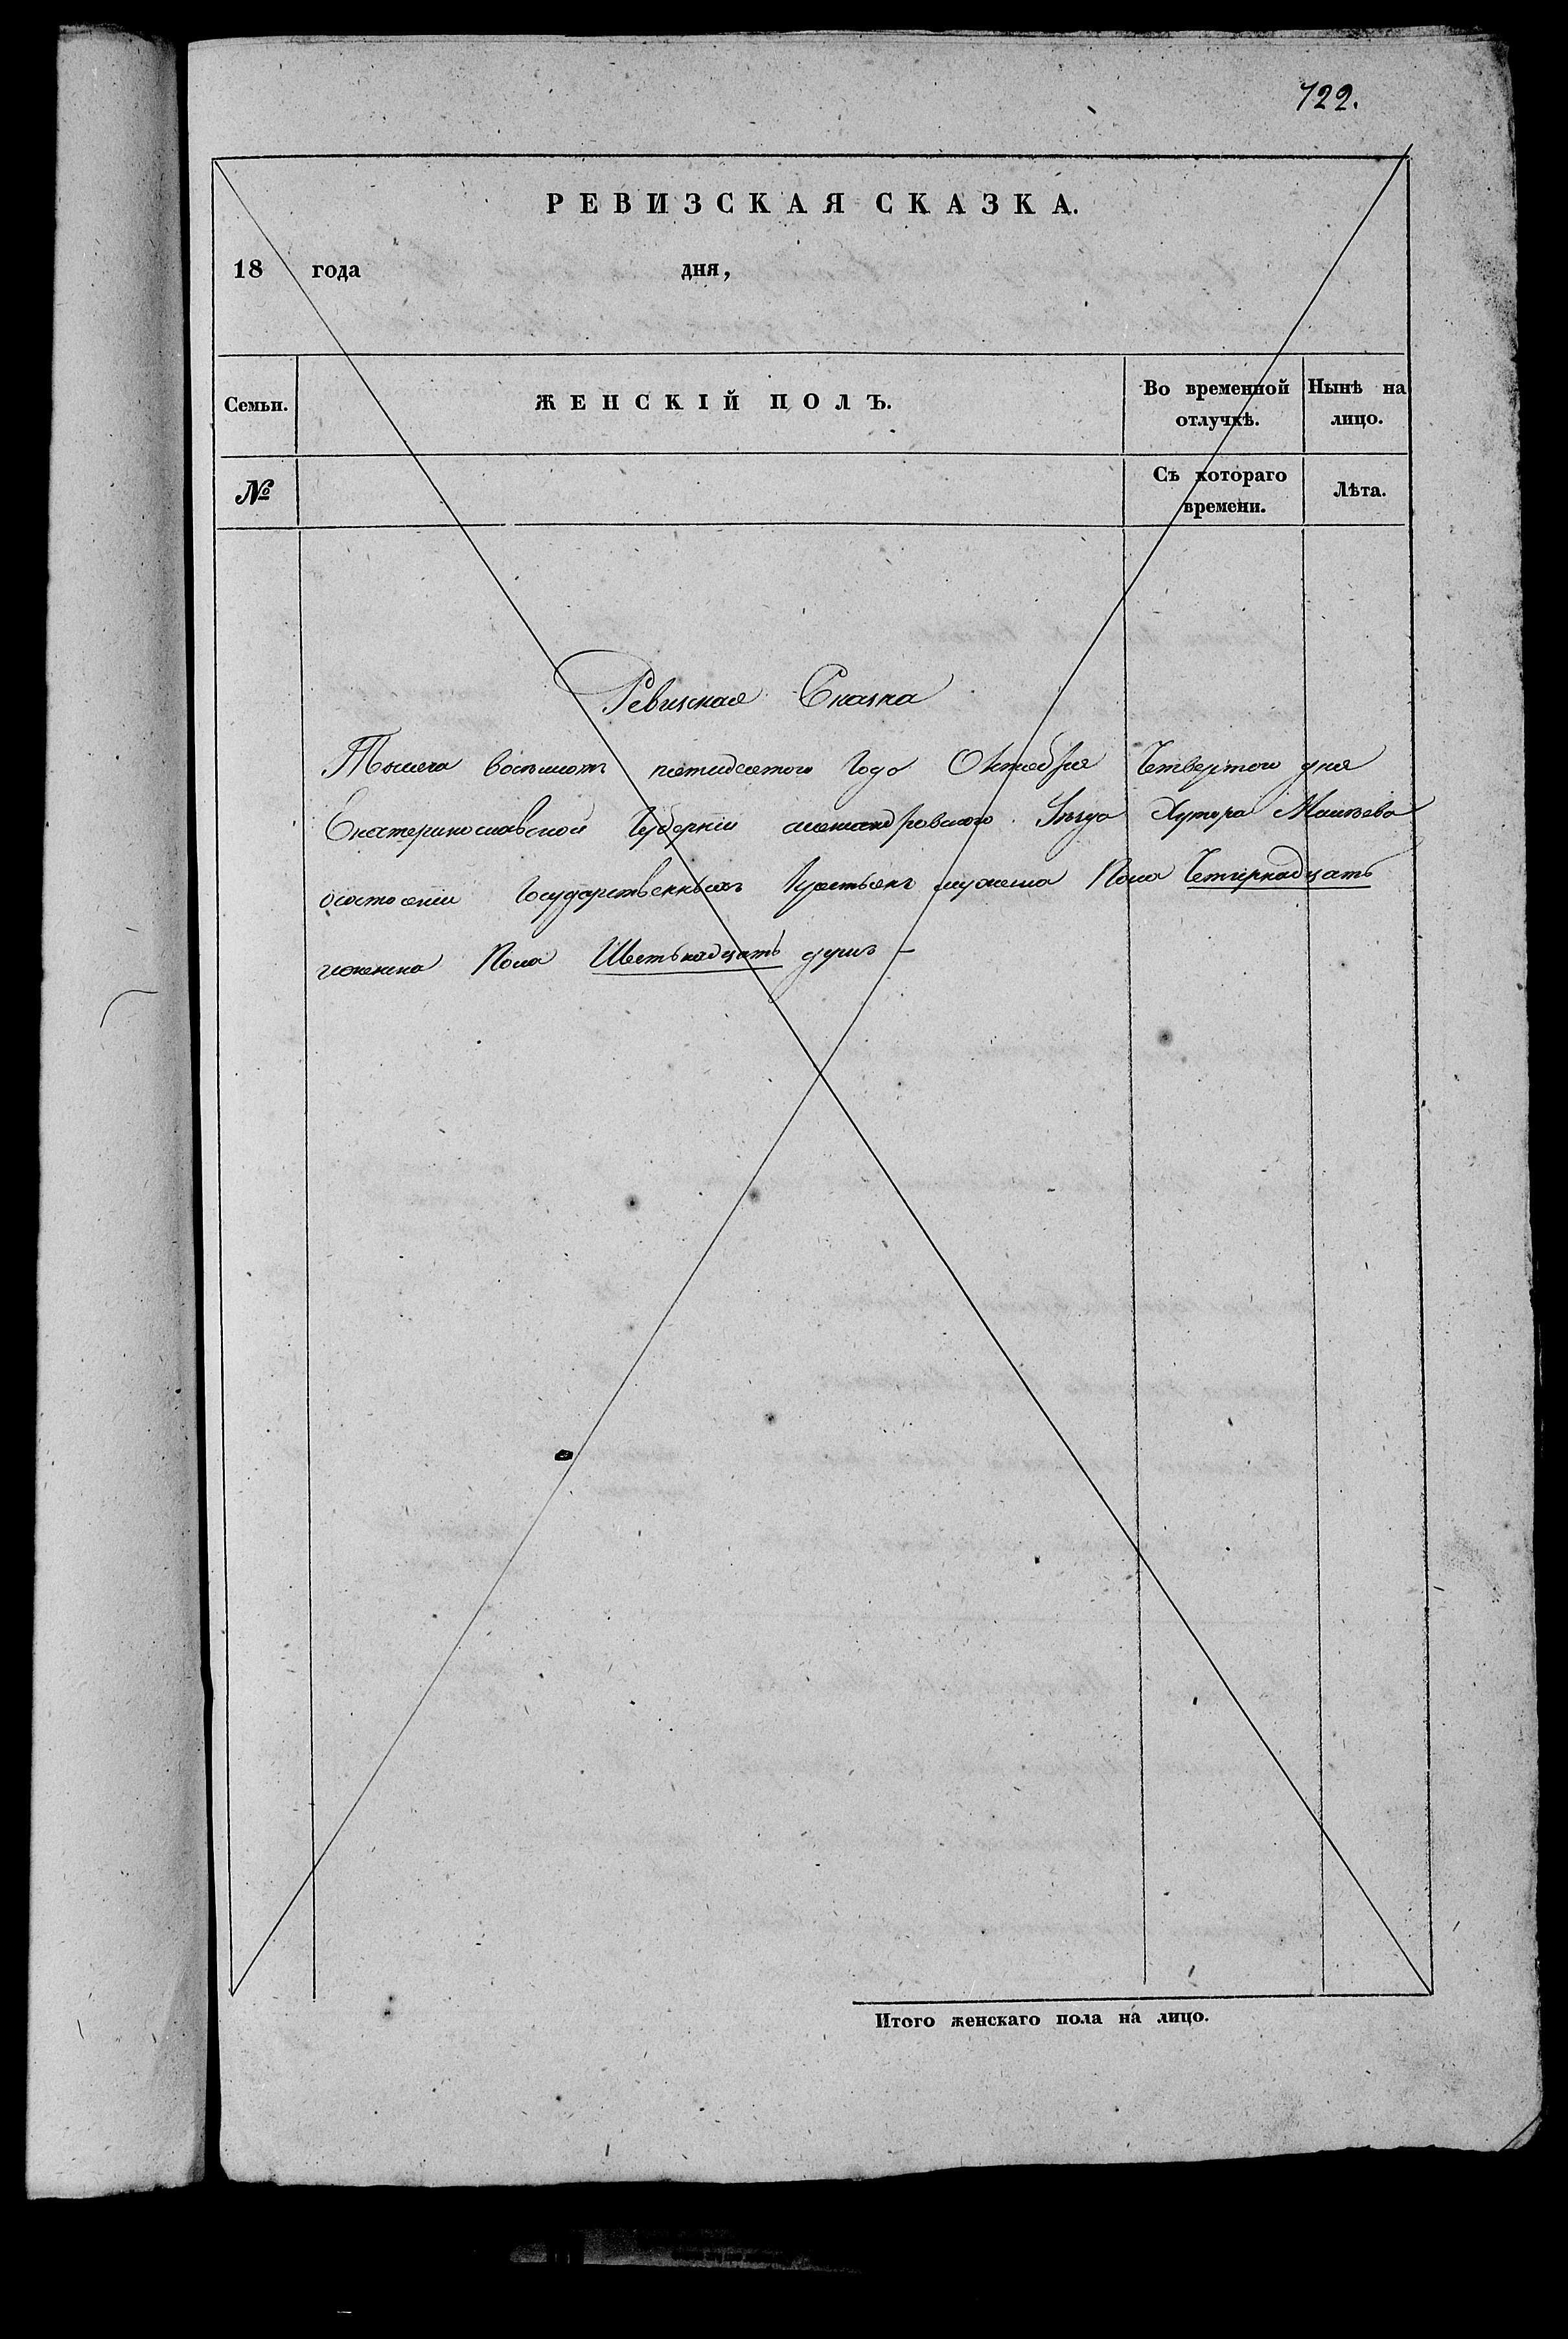 722.
РЕВИЗСКАЯ СКАЗКА.
18 года дня,
Семьи. ЖЕНСКІЙ ПОЛЪ. Во временной отлучкѣ. Нынѣ на лицо.
№ Съ котораго времени. Лѣта.
Ревизская Сказка
Тысяча восьмотъ пятидсятого Года Октября Четвертого дня
Екатеринославской Губерніи александровского Уѣзда Хутора
осостоянии Государственныхъ Крестьянъ мужеска Пола Четырнадцать
иженска Пола Шестьнадцать душъ –
Итого женскаго пола на лицо.